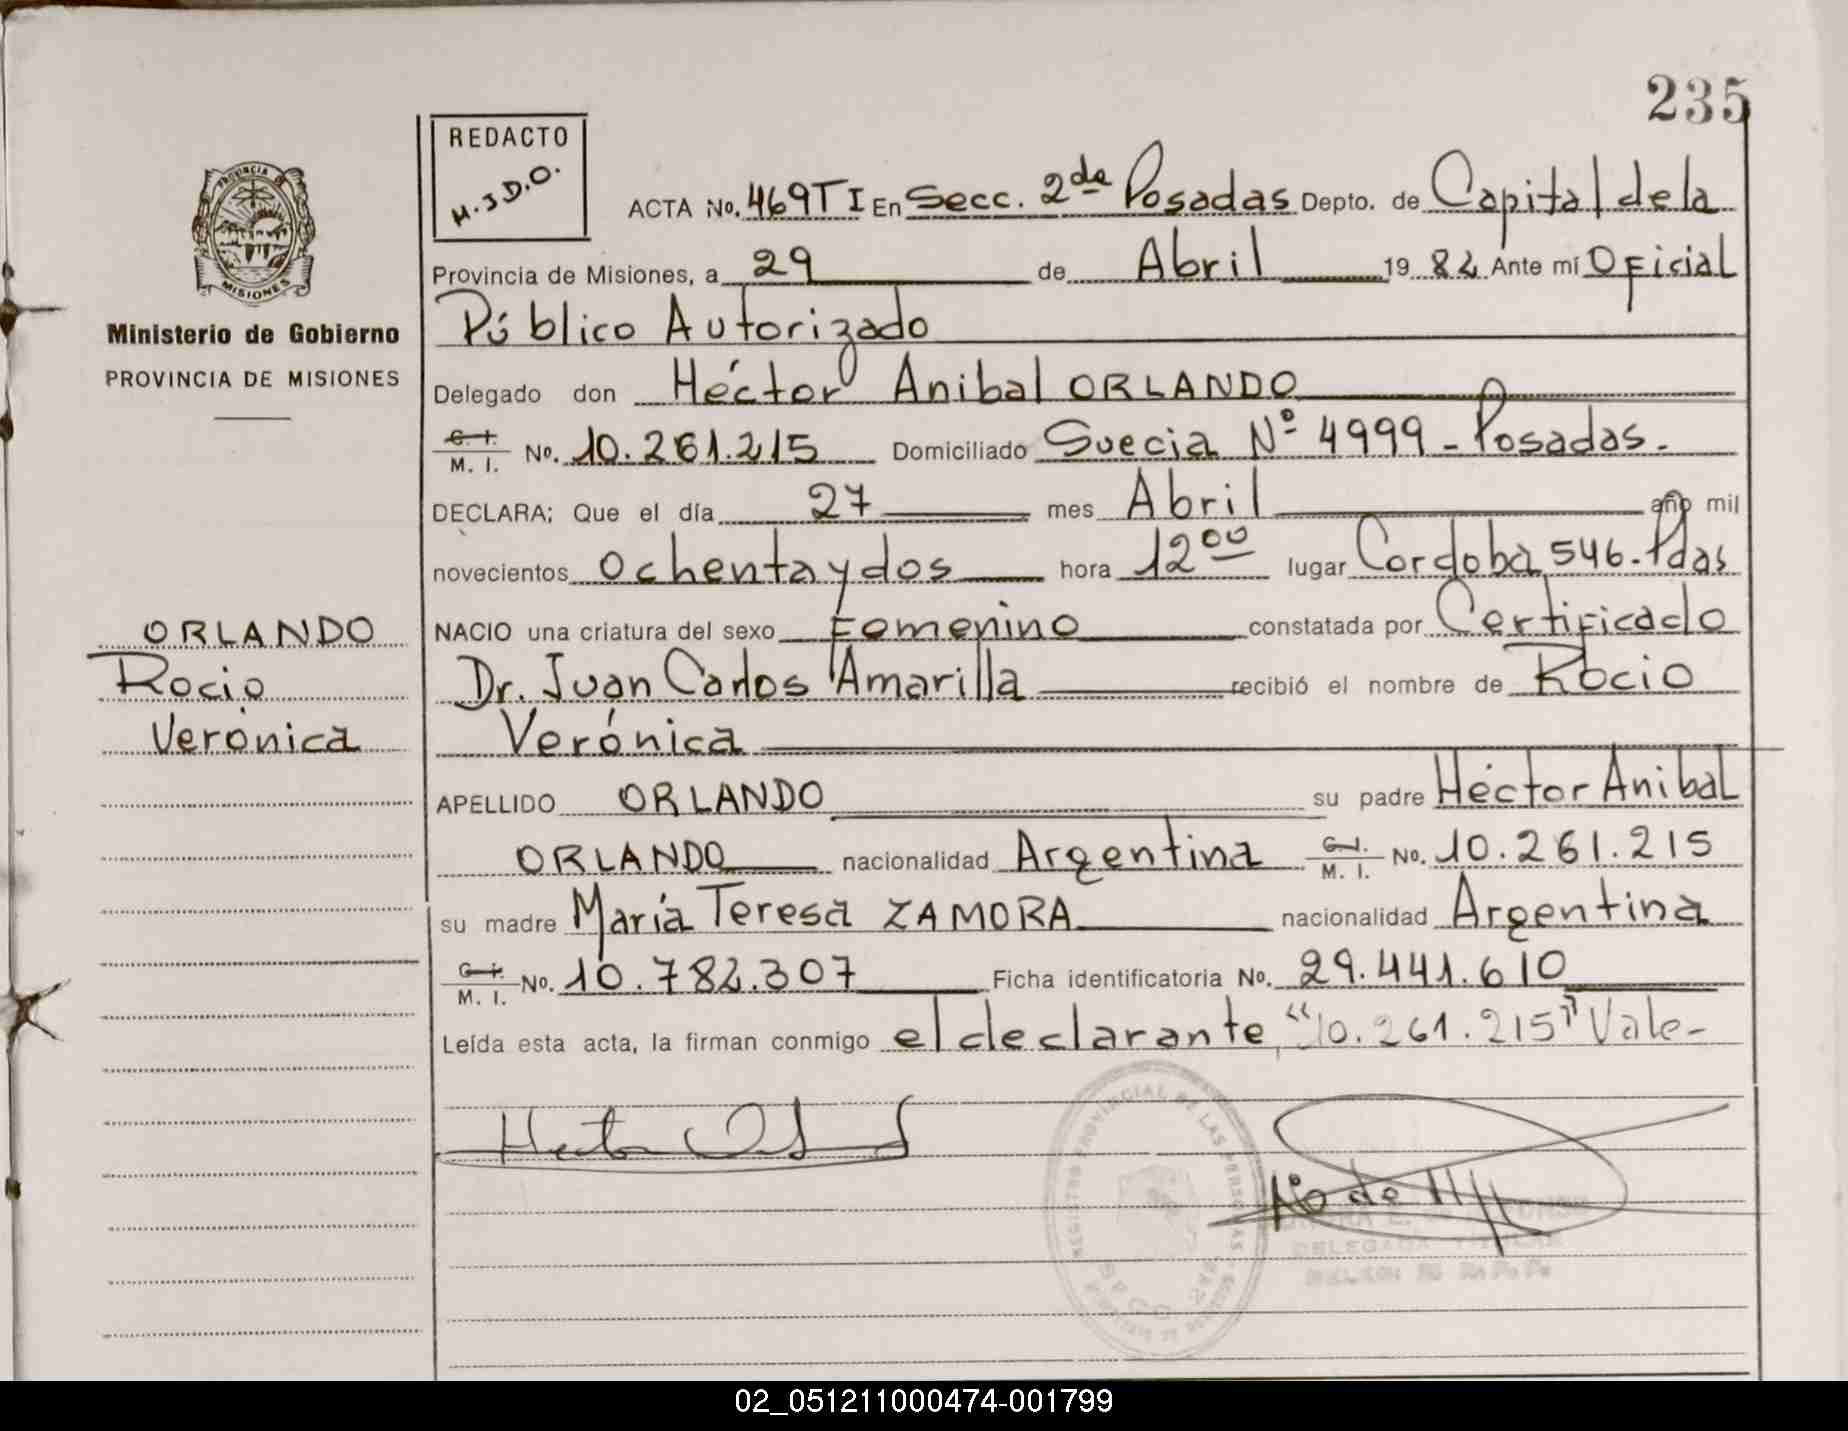 235
REDACTO
H.J.D.O.
ACTA No. 469TI En Secc. 2da Posadas Depto. de Capital de la
Provincia de Misiones, a 29 de Abril 1982 Ante mí Oficial
Público Autorizado
Delegado don Héctor Anibal ORLANDO
C. I. M. I. No. 10.261.215 Domiciliado Suecia Nº 4999 - Posadas.-
DECLARA; Que el día 27 mes Abril año mil
novecientos ochenta y dos hora 12 00 lugar Cordoba 546. Pdas
NACIO una criatura del sexo Femenino constatada por Certificado
Dr. Juan Carlos Amarilla recibió el nombre de Rocio
Verónica
APELLIDO ORLANDO su padre Héctor Anibal
ORLANDO nacionalidad Argentina C. I. M. I. No. 10.261.215
su madre María Teresa ZAMORA nacionalidad Argentina
C. I. M. I. No. 10.782.307 Ficha identificatoria No. 29.441.610
Leída esta acta, la firman conmigo el declarante, "10.261.215" Vale-
PROVINCIA
MISIONES
Ministerio de Gobierno
PROVINCIA DE MISIONES
ORLANDO
Rocio
Verónica
REGISTRO PROVINCIAL DE LAS PERSONAS
DELEGADA
02_051211000474-001799